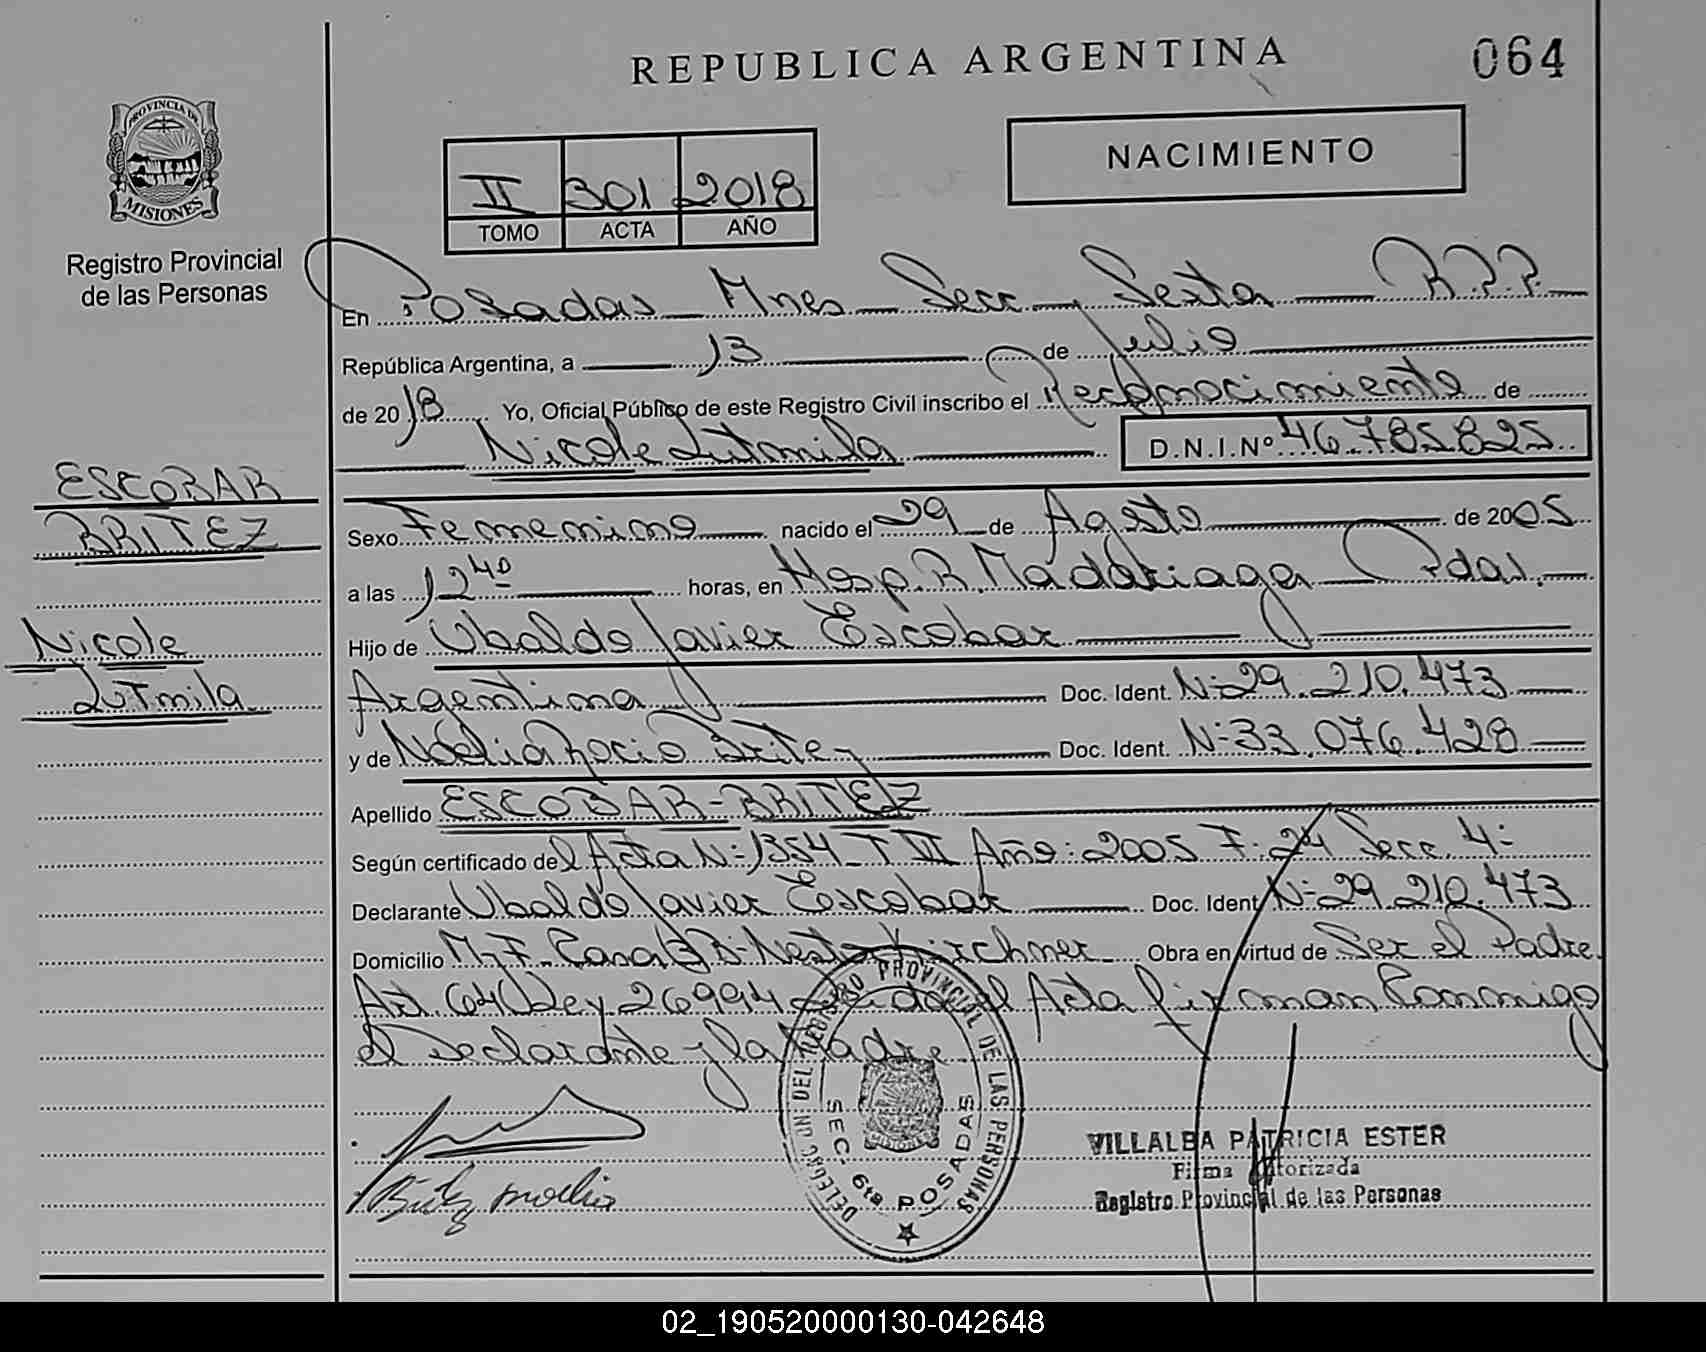 REPUBLICA ARGENTINA
064
PROVINCIA DE
MISIONES
Registro Provincial
de las Personas
NACIMIENTO
II 301 2018
TOMO ACTA AÑO
En Posadas Mnes Secc. Sexta R.P.P.
República Argentina, a 13 de Julio
de 2018 Yo, Oficial Público de este Registro Civil inscribo el Reconocimiento de
Nicole Lutmila D.N.I.Nº 46.785.825
ESCOBAR
BRITEZ
Nicole
Lutmila
Sexo Femenino nacido el 29 de Agosto de 2005
a las 12 40 horas, en Hosp. R. Madariaga Pdas.
Hijo de Ubaldo Javier Escobar
Argentina Doc. Ident. Nº 29.210.473
y de Noelia Rocio Britez Doc. Ident. Nº 33.076.428
Apellido ESCOBAR-BRITEZ
Según certificado del Acta Nº 1354 T III Año: 2005 F: 24 Secc. 4º
Declarante Ubaldo Javier Escobar Doc. Ident. Nº 29.210.473
Domicilio Casa Bº Nestor Kirchner Obra en virtud de Ser el Padre
Art. 64 Ley 26994 Acta firman Conmigo
el Declarante y la Madre
Britez Noelia
DELEGACION DEL REGISTRO PROVINCIAL DE LAS PERSONAS
SEC. 6ta POSADAS
MISIONES
VILLALBA PATRICIA ESTER
Firma Autorizada
Registro Provincial de las Personas
02_190520000130-042648